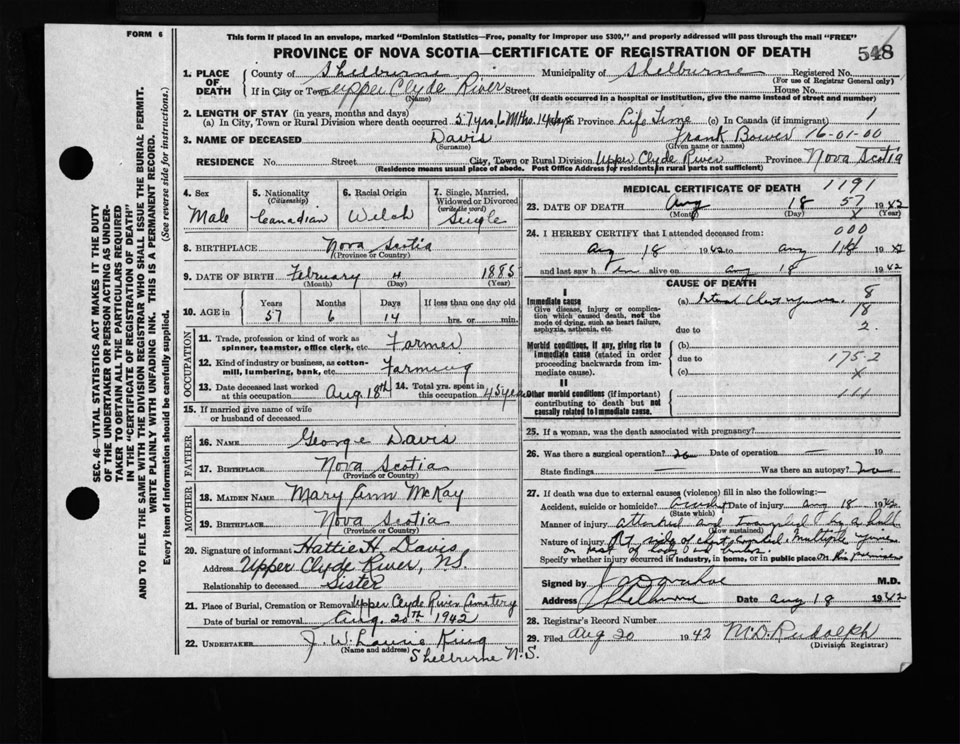 FORM 6
This form if placed in an envelope, marked "Dominion Statistics—Free, penalty for improper use $300", and properly addressed will pass through the mail "FREE"
PROVINCE OF NOVA SCOTIA—CERTIFICATE OF REGISTRATION OF DEATH
548
1. PLACE OF DEATH
County of Shelburne Municipality of Shelburne Registered No.
(For use of Registrar General only)
If in City or Town Upper Clyde River Street House No.
(Name) (If death occurred in a hospital or institution, give the name instead of street and number)
2. LENGTH OF STAY (in years, months and days)
(a) In City, Town or Rural Division where death occurred 57 yrs, 6 Mths. 14 days Province Life Time (c) In Canada (if immigrant) 1
3. NAME OF DECEASED Davis Frank Bower 16-01-00
(Surname) (Given name or names)
RESIDENCE No. Street City, Town or Rural Division Upper Clyde River Province Nova Scotia
(Residence means usual place of abode. Post Office Address for residents in rural parts not sufficient)
4. Sex
Male
5. Nationality
(Citizenship)
Canadian
6. Racial Origin
Welsh
7. Single, Married, Widowed or Divorced
(write the word)
Single
8. BIRTHPLACE Nova Scotia
(Province or Country)
9. DATE OF BIRTH February 4 1885
(Month) (Day) (Year)
10. AGE in
Years Months Days If less than one day old
57 6 14 hrs. or min.
OCCUPATION
11. Trade, profession or kind of work as spinner, teamster, office clerk, etc. Farmer
12. Kind of industry or business, as cotton-mill, lumbering, bank, etc. Farming
13. Date deceased last worked at this occupation Aug. 18th 14. Total yrs. spent in this occupation 45 years
15. If married give name of wife or husband of deceased
FATHER
16. NAME George Davis
17. BIRTHPLACE Nova Scotia
(Province or Country)
MOTHER
18. MAIDEN NAME Mary Ann McKay
19. BIRTHPLACE Nova Scotia
(Province or Country)
20. Signature of informant Hattie H. Davis
Address Upper Clyde River, N.S.
Relationship to deceased Sister
21. Place of Burial, Cremation or Removal Upper Clyde River Cemetery
Date of burial or removal Aug. 20th 1942
22. UNDERTAKER J. W. Laurie King
(Name and address) Shelburne N.S.
MEDICAL CERTIFICATE OF DEATH 1191
23. DATE OF DEATH Aug 18 57 1942
(Month) (Day) X (Year)
24. I HEREBY CERTIFY that I attended deceased from: 000
Aug 18 1942 to Aug 18 1942
and last saw him alive on Aug 18 1942
CAUSE OF DEATH
I
Immediate cause
Give disease, injury or complication which caused death, not the mode of dying, such as heart failure, asphyxia, asthenia, etc.
(a) Internal Chest injuries 8
18
due to 2.
Morbid conditions, if any, giving rise to immediate cause (stated in order proceeding backwards from immediate cause).
(b)
due to 175-2
(c) X
II
Other morbid conditions (if important) contributing to death but not causally related to immediate cause.
111
25. If a woman, was the death associated with pregnancy?
26. Was there a surgical operation? no Date of operation — 19
State findings — Was there an autopsy? no
27. If death was due to external causes (violence) fill in also the following:—
Accident, suicide or homicide? accident Date of injury Aug 18 1942
(State which)
Manner of injury attacked and trampled by a bull
(How sustained)
Nature of injury Rt side of chest crushed, multiple injuries
on rest of body and limbs.
Specify whether injury occurred in industry, in home, or in public place on his premises
Signed by M.D.
Address Shelburne Date Aug 18 1942
28. Registrar's Record Number
29. Filed Aug 20 1942 M.D. Rudolph
(Division Registrar)
SEC. 46—VITAL STATISTICS ACT MAKES IT THE DUTY
OF THE UNDERTAKER OR PERSON ACTING AS UNDER-
TAKER TO OBTAIN ALL THE PARTICULARS REQUIRED
IN THE "CERTIFICATE OF REGISTRATION OF DEATH"
AND TO FILE THE SAME WITH THE DIVISION REGISTRAR WHO SHALL ISSUE THE BURIAL PERMIT.
WRITE PLAINLY WITH UNFADING INK. THIS IS A PERMANENT RECORD.
Every item of information should be carefully supplied. (See reverse side for instructions.)